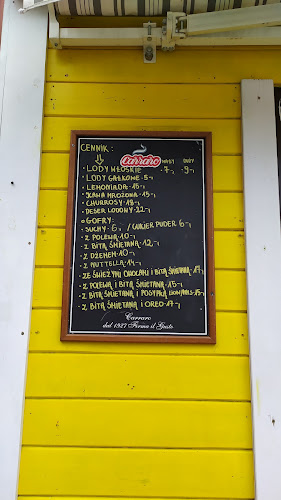 CENNIK:
Carraro
MAŁY DUŻY
• LODY WŁOSKIE -7,- -9,-
• LODY GAŁKOWE -5,-
• LEMONIADA -15,-
• KAWA MROŻONA -15,-
• CHURROSY -18,-
• DESER LODOWY -22,-
• GOFRY:
• SUCHY - 6,- / CUKIER PUDER 6,-
• Z POLEWĄ -10,-
• Z BITĄ ŚMIETANĄ -12,-
• Z DŻEMEM -10,-
• Z NUTTELLĄ -14,-
• ZE ŚWIEŻYMI OWOCAMI I BITĄ ŚMIETANĄ -17,-
• Z POLEWĄ I BITĄ ŚMIETANĄ -15,-
• Z BITĄ ŚMIETANĄ I POSYPKĄ -15,-
• Z BITĄ ŚMIETANĄ I OREO -17,-
Carraro
dal 1927 Firma il Gusto